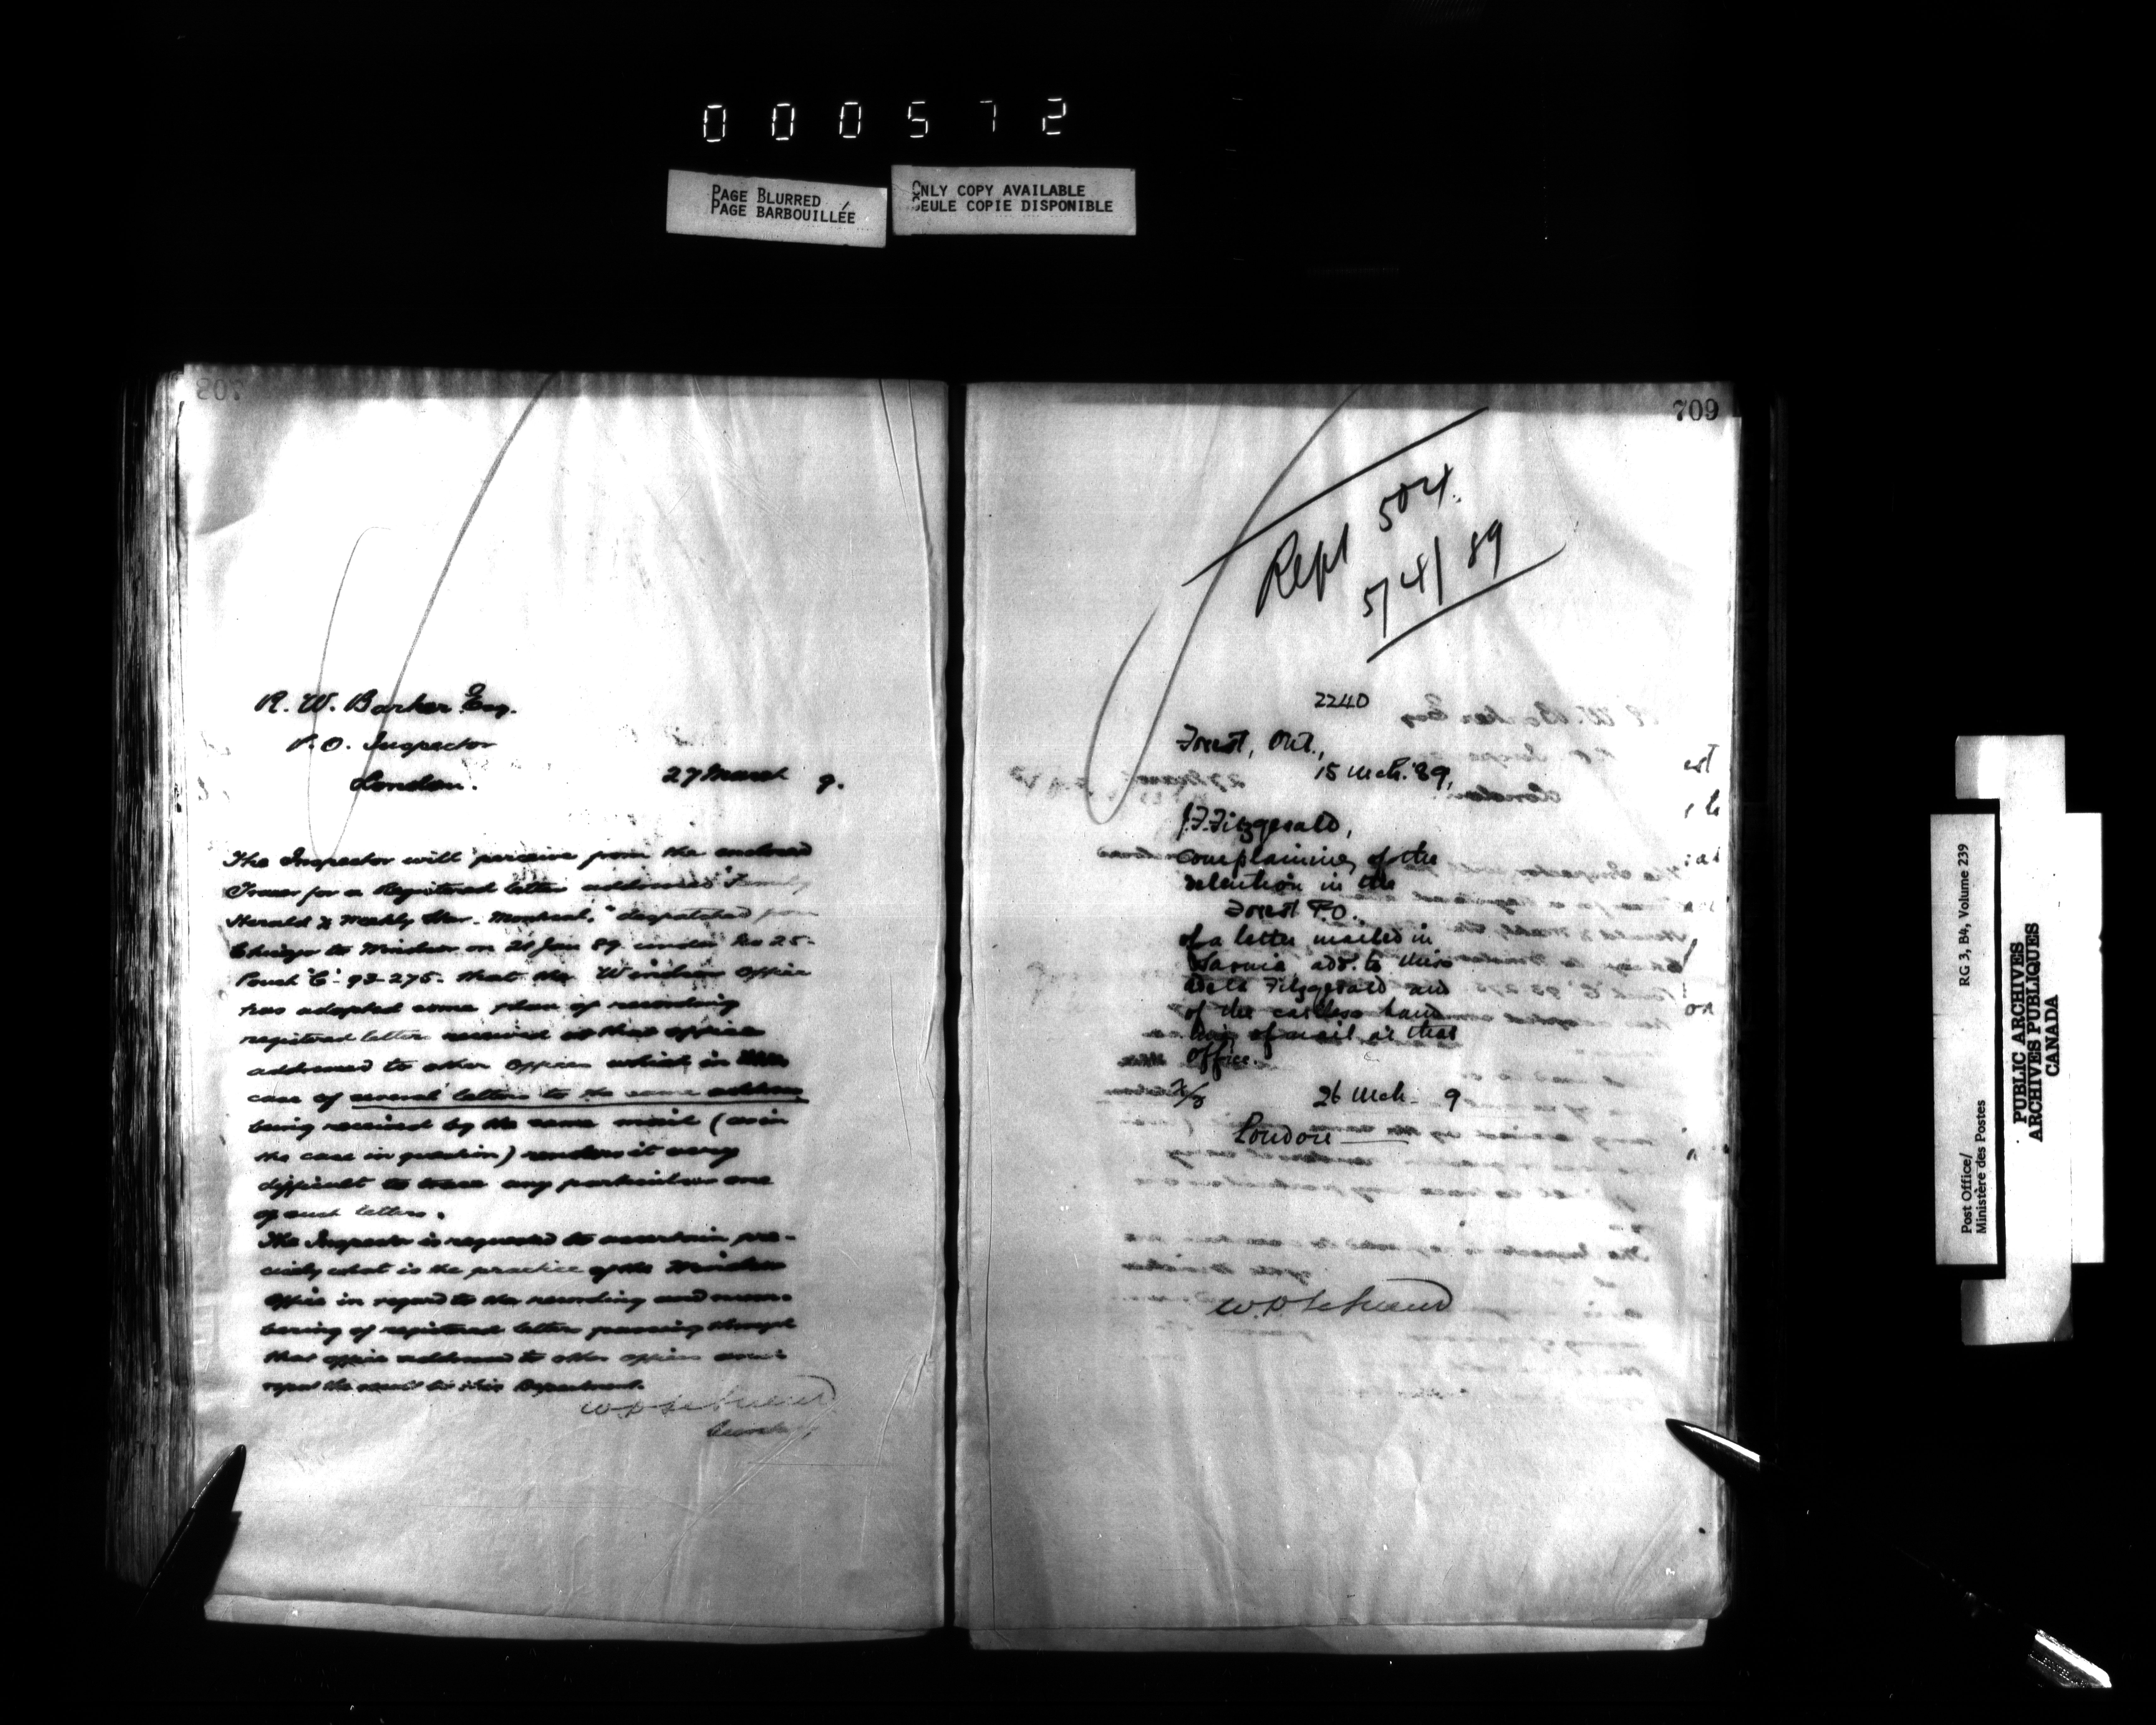 000572
PAGE BLURRED
PAGE BARBOUILLÉE
ONLY COPY AVAILABLE
SEULE COPIE DISPONIBLE
R. W. Barker Esq.
P. O. Inspector
London. 27 March 9.
The Inspector will perceive from the enclosed
Tracer for a Registered letter addressed "Family
Herald & Weekly Star. Montreal." despatched from
Chicago to Windsor on 21 Jan 89 under No 25-
Pouch "C" 93-275- that the Windsor Office
has adopted some plan of recording
registered letters received at that office
addressed to other Offices which in the
case of several letters to the same address
being received by the same mail (as in
the case in question) renders it very
difficult to trace any particular one
of such letters.
The Inspector is requested to ascertain pre-
cisely what is the practice of the Windsor
Office in regard to the recording and num-
bering of registered letters passing through
that office addressed to other offices and
report the result to this Department.
W. D. LeSueur
Secretary
709
Rept 504.
5/4/89
2240
Forest, Ont.,
15 Mch. '89,
J. F. Fitzgerald,
complaining of the
detention in the
Forest P.O.
of a letter mailed in
Sarnia add. to Miss
Fitzgerald and
of the careless hand
ling of mail at that
office.
26 Mch. 9
London
W. D. LeSueur
Post Office/
Ministère des Postes
RG 3, B4, Volume 239
PUBLIC ARCHIVES
ARCHIVES PUBLIQUES
CANADA